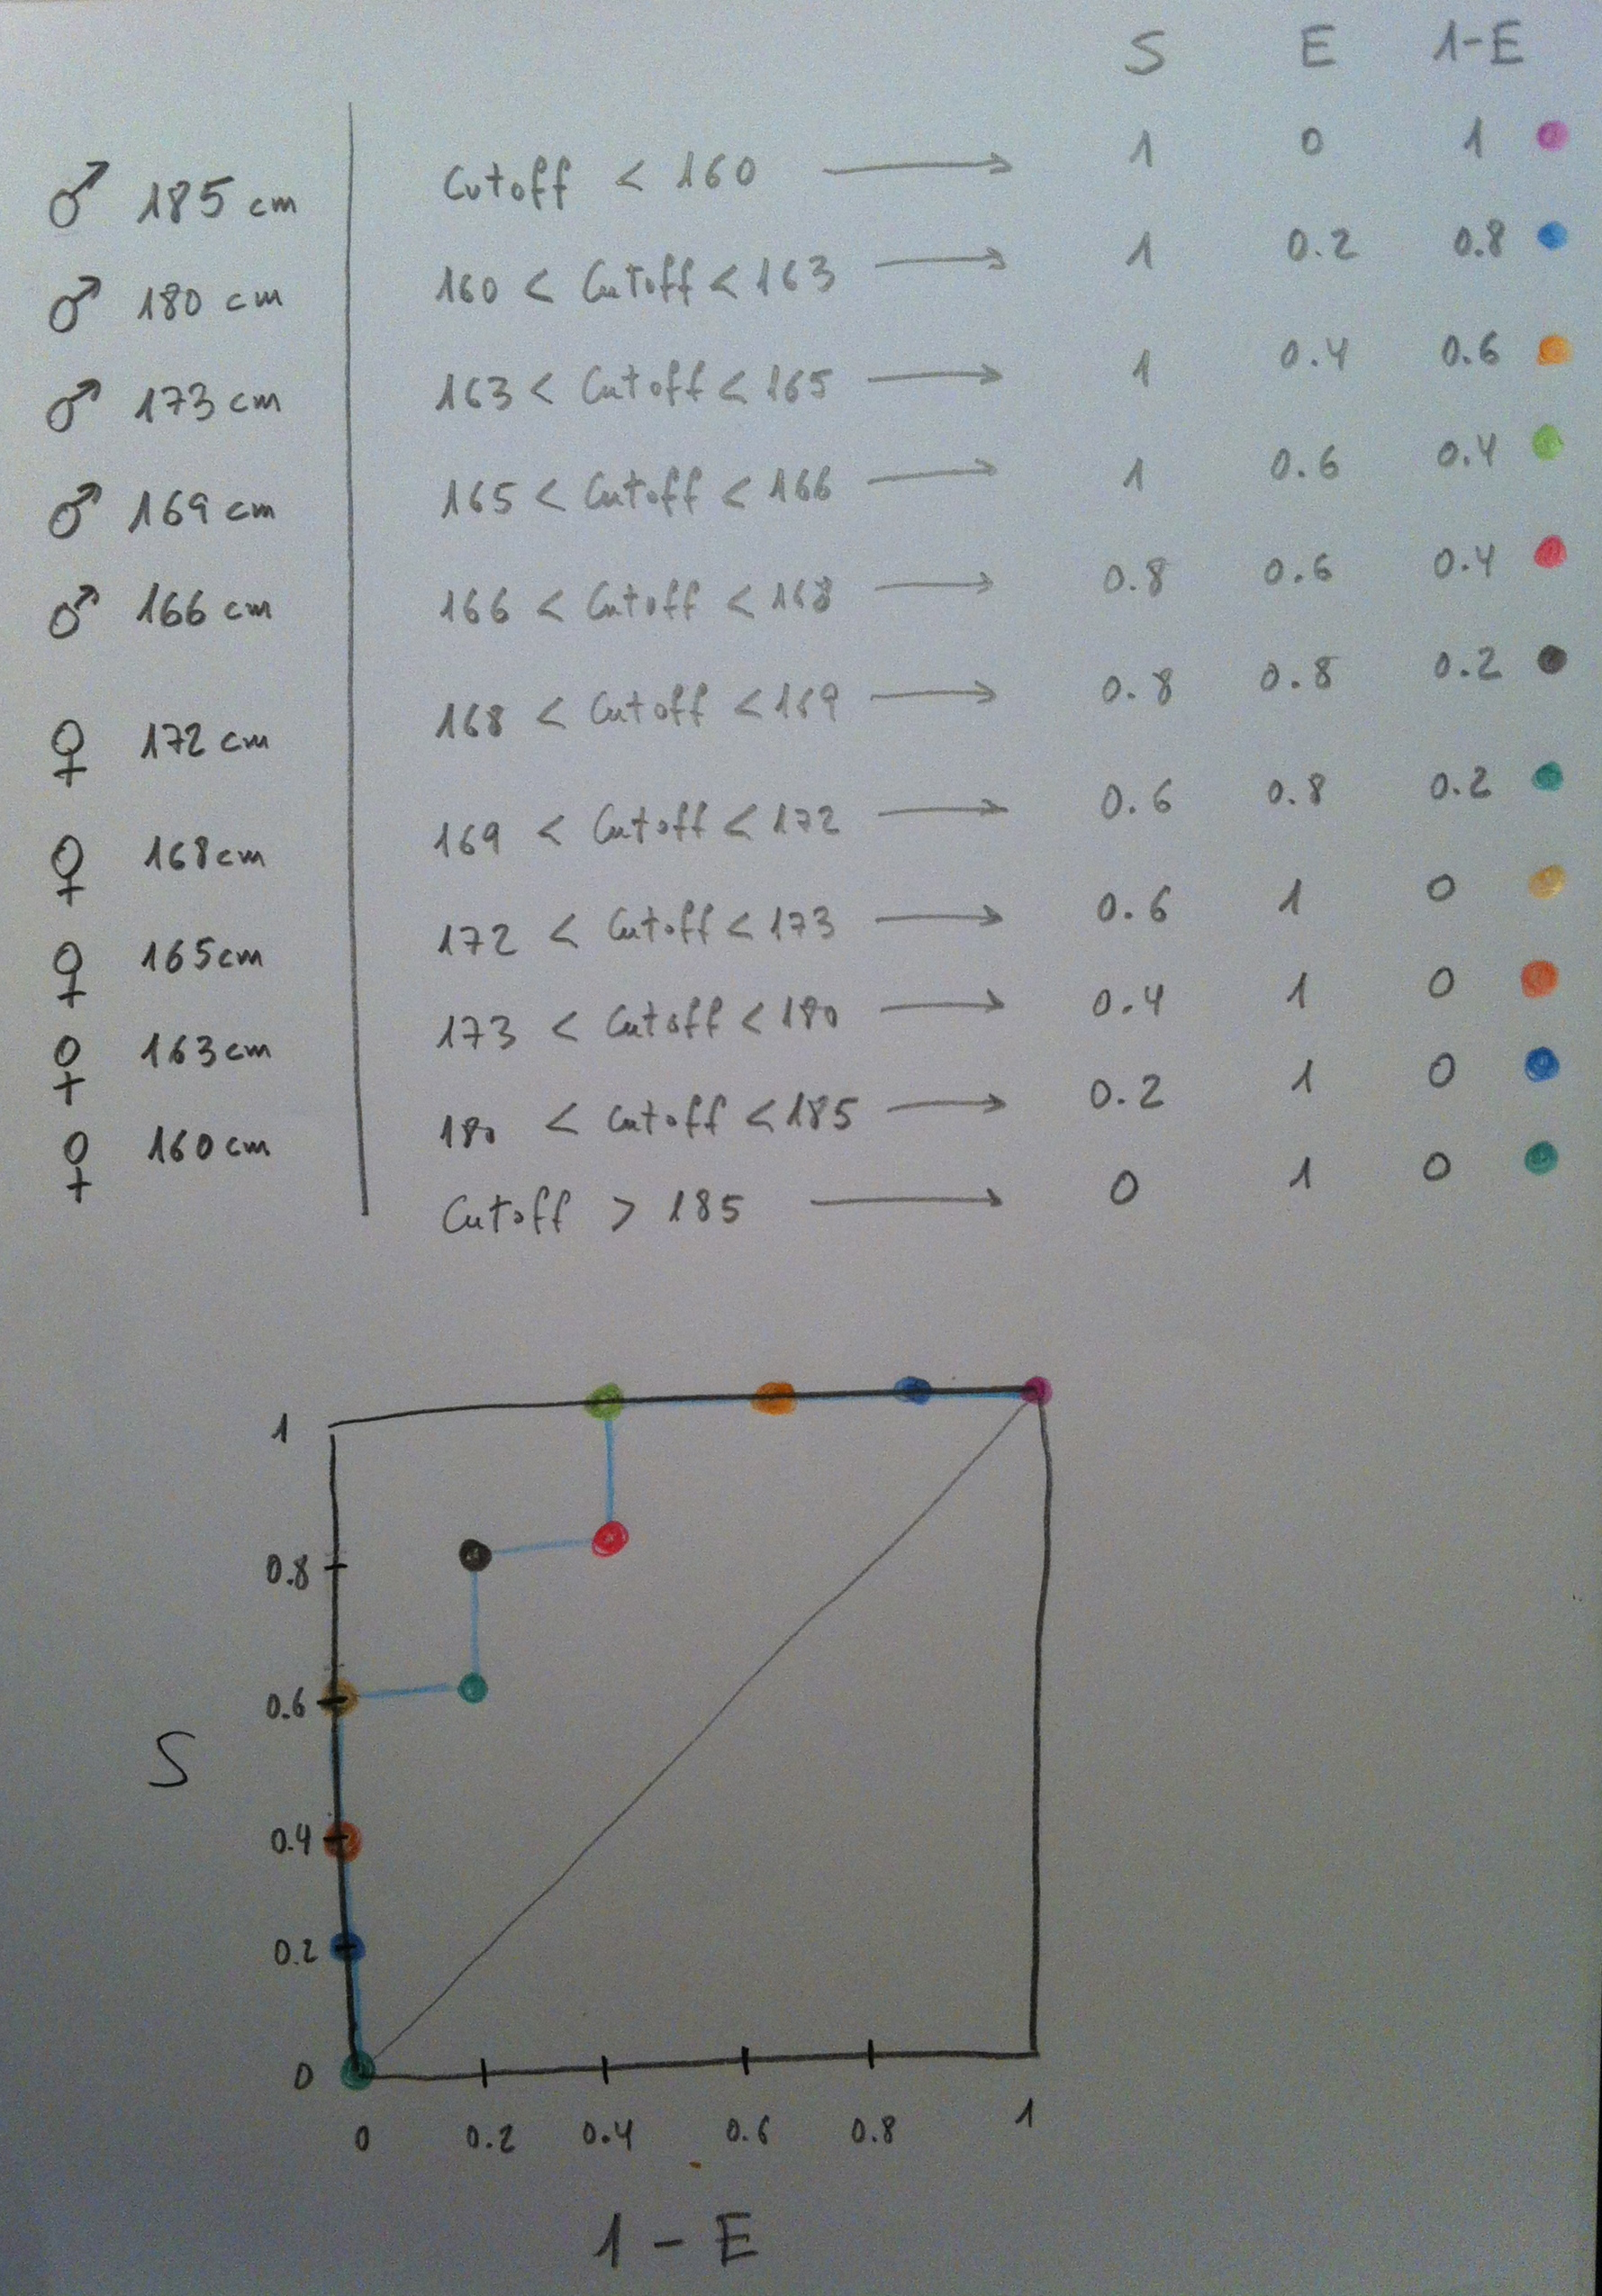 S E 1-E
♂ 185 cm Cutoff < 160 → 1 0 1
♂ 180 cm 160 < Cutoff < 163 → 1 0.2 0.8
♂ 173 cm 163 < Cutoff < 165 → 1 0.4 0.6
♂ 169 cm 165 < Cutoff < 166 → 1 0.6 0.4
♂ 166 cm 166 < Cutoff < 168 → 0.8 0.6 0.4
♀ 172 cm 168 < Cutoff < 169 → 0.8 0.8 0.2
♀ 168 cm 169 < Cutoff < 172 → 0.6 0.8 0.2
♀ 165 cm 172 < Cutoff < 173 → 0.6 1 0
♀ 163 cm 173 < Cutoff < 180 → 0.4 1 0
♀ 160 cm 180 < Cutoff < 185 → 0.2 1 0
Cutoff > 185 → 0 1 0
1
0.8
0.6
S
0.4
0.2
0
0 0.2 0.4 0.6 0.8 1
1 - E